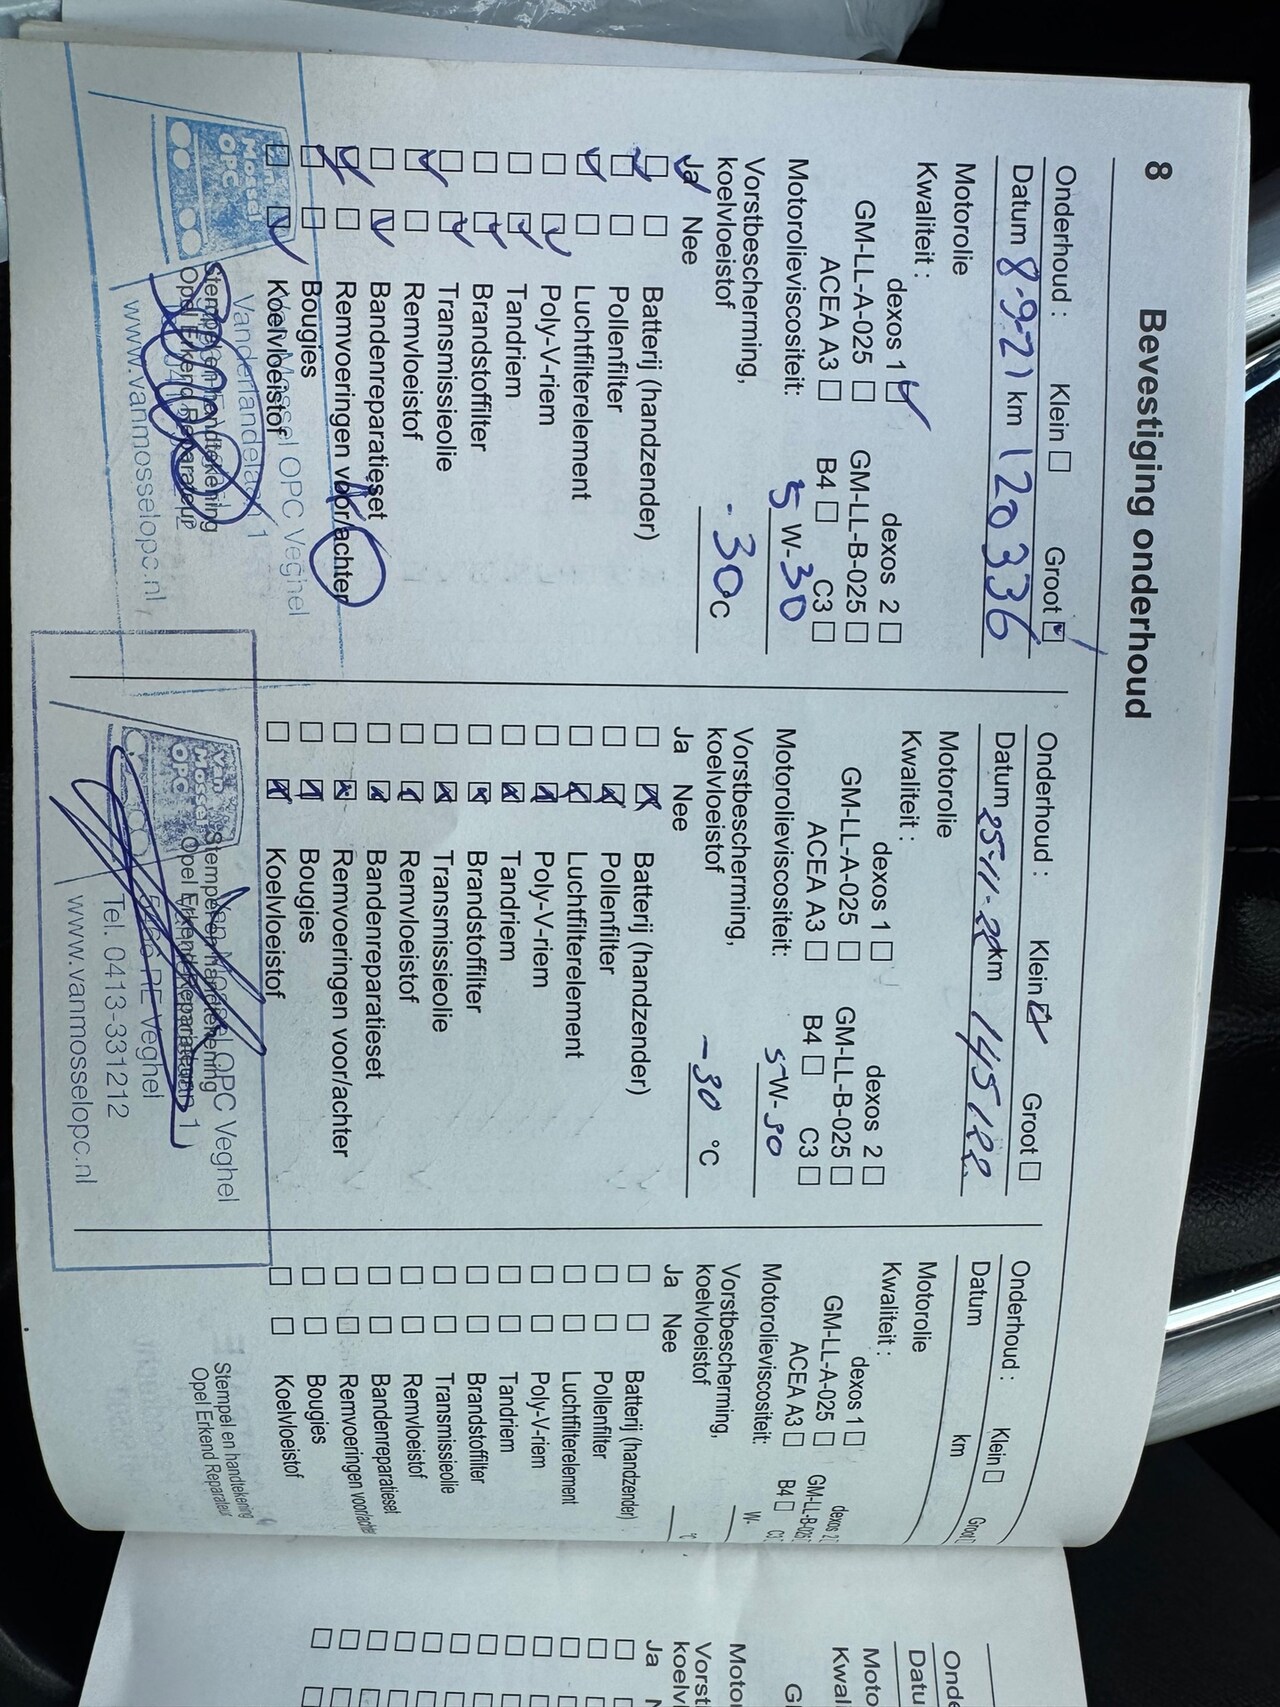 8
Bevestiging onderhoud
Onderhoud : Klein Groot
Datum 8-9-21 km 120336
Motorolie
Kwaliteit :
dexos 1 dexos 2
GM-LL-A-025 GM-LL-B-025
ACEA A3 B4 C3
Motorolieviscositeit: 5 W-30
Vorstbescherming,
koelvloeistof -30 °C
Ja Nee
Batterij (handzender)
Pollenfilter
Luchtfilterelement
Poly-V-riem
Tandriem
Brandstoffilter
Transmissieolie
Remvloeistof
Bandenreparatieset
Remvoeringen voor/achter
Bougies
Koelvloeistof
Stempel en handtekening
Opel Erkend Reparateur
Van
Mossel
OPC
Van Mossel OPC Veghel
Vanderlandelaan 1
www.vanmosselopc.nl
Onderhoud : Klein Groot
Datum 25-11-22 km 145122
Motorolie
Kwaliteit :
dexos 1 dexos 2
GM-LL-A-025 GM-LL-B-025
ACEA A3 B4 C3
Motorolieviscositeit: 5 W-30
Vorstbescherming,
koelvloeistof -30 °C
Ja Nee
Batterij (handzender)
Pollenfilter
Luchtfilterelement
Poly-V-riem
Tandriem
Brandstoffilter
Transmissieolie
Remvloeistof
Bandenreparatieset
Remvoeringen voor/achter
Bougies
Koelvloeistof
Stempel en handtekening
Opel Erkend Reparateur
Van
Mossel
OPC
Van Mossel OPC Veghel
5466 RE Veghel
Tel. 0413-331212
www.vanmosselopc.nl
Onderhoud : Klein Groot
Datum km
Motorolie
Kwaliteit :
dexos 1 dexos 2
GM-LL-A-025 GM-LL-B-025
ACEA A3 B4 C3
Motorolieviscositeit: W-
Vorstbescherming,
koelvloeistof °C
Ja Nee
Batterij (handzender)
Pollenfilter
Luchtfilterelement
Poly-V-riem
Tandriem
Brandstoffilter
Transmissieolie
Remvloeistof
Bandenreparatieset
Remvoeringen voor/achter
Bougies
Koelvloeistof
Stempel en handtekening
Opel Erkend Reparateur
Onde
Datu
Moto
Kwal
G
Motor
Vorst
koelvl
Ja N